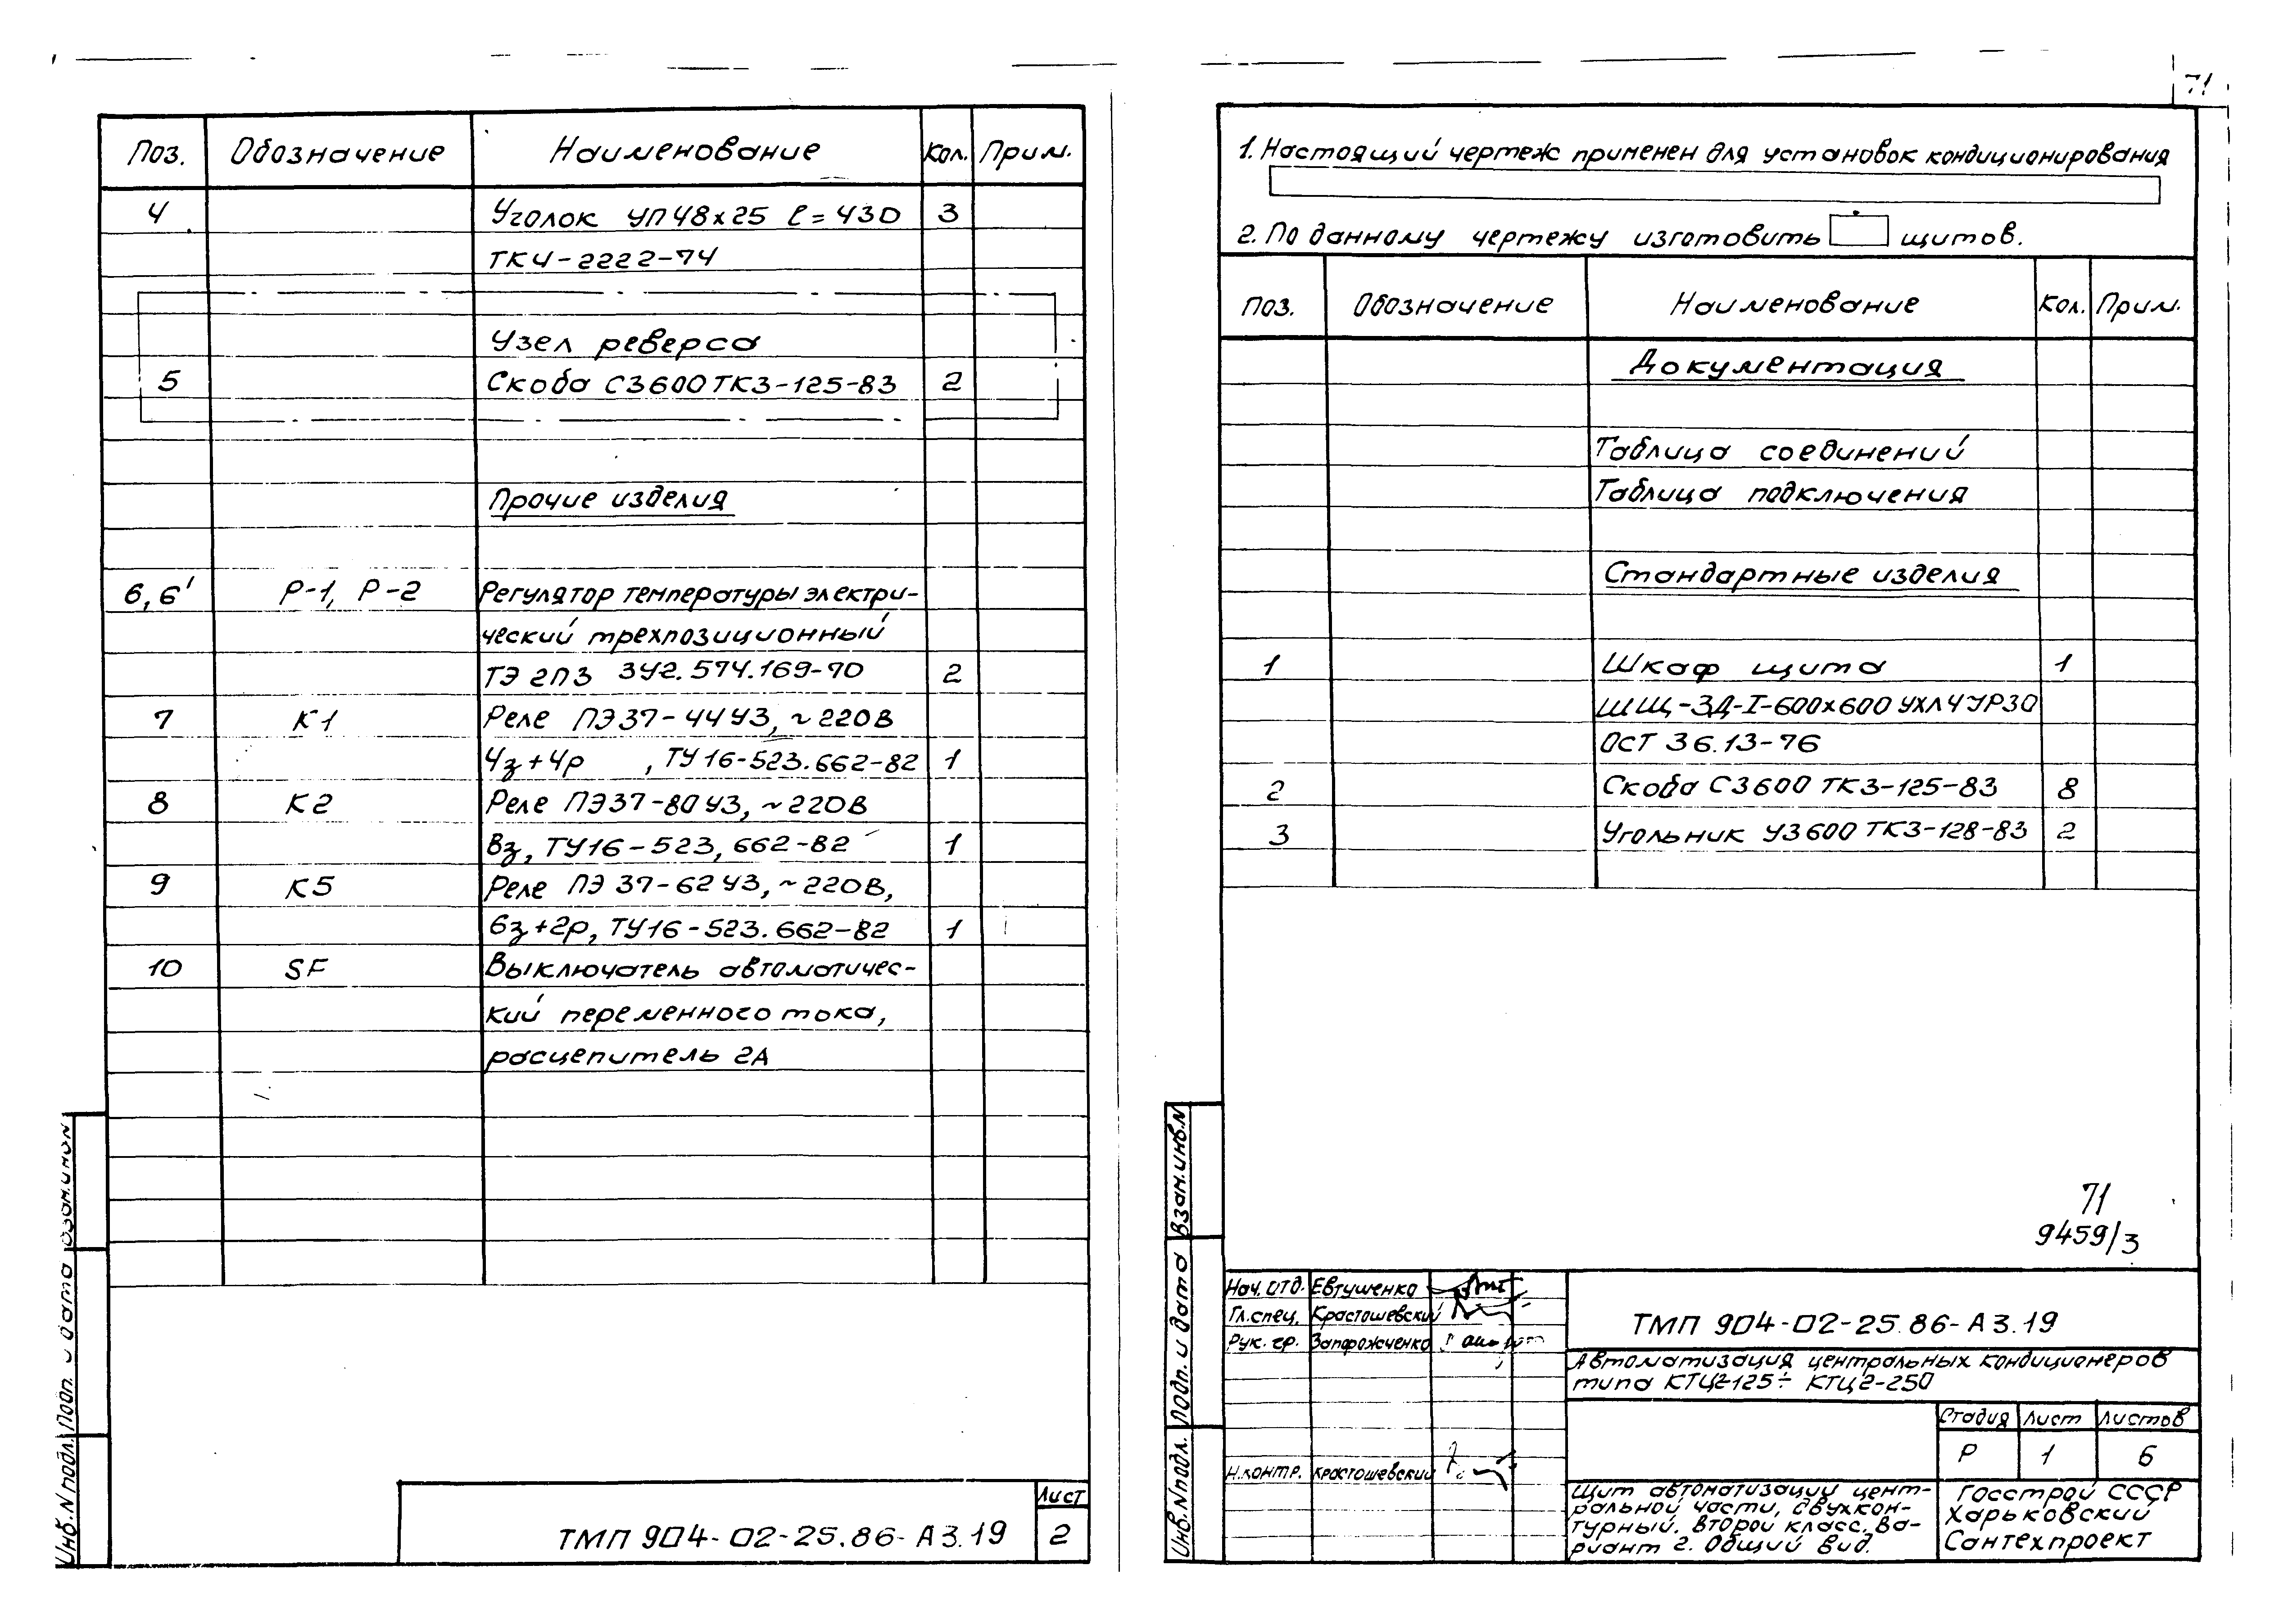 Поз. Обозначение Наименование Кол. Прим.
4 Уголок УП 48х25 ℓ=430 3
ТК4-2222-74
Узел реверса
5 Скоба С3600 ТК3-125-83 2
Прочие изделия
6, 6' Р-1, Р-2 Регулятор температуры электри-
ческий трехпозиционный
ТЭ 2П3 3У2.574.169-70 2
7 К1 Реле ПЭ37-44У3, ~220В
4з+4р , ТУ16-523.662-82 1
8 К2 Реле ПЭ37-80У3, ~220В
8з, ТУ16-523,662-82 1
9 К5 Реле ПЭ 37-62У3, ~220В,
6з+2р, ТУ16-523.662-82 1
10 SF Выключатель автоматичес-
кий переменного тока,
расцепитель 2А
Инв.N подл. Подп. и дата
ТМП 904-02-25.86-А3.19
Лист
2
71
1. Настоящий чертеж применен для установок кондиционирования
2. По данному чертежу изготовить щитов.
Поз. Обозначение Наименование Кол. Прим.
Документация
Таблица соединений
Таблица подключения
Стандартные изделия
1 Шкаф щита 1
ШЩ-ЗД-I-600х600 УХЛ4УР30
ОСТ 36.13-76
2 Скоба С3600 ТК3-125-83 8
3 Угольник У3600 ТК3-128-83 2
71
9459/3
Инв.N подл. Подп. и дата Взам.инв.N
Нач. отд. Евтушенко
Гл.спец. Красташевский
Рук. гр. Запорожченко
Н.контр. Красташевский
ТМП 904-02-25.86-А3.19
Автоматизация центральных кондиционеров
типа КТЦ2-125÷ КТЦ2-250
Стадия Лист Листов
Р 1 6
Щит автоматизации цент-
ральной части, двухкон-
турный. Второй класс, ва-
риант 2. Общий вид.
Госстрой СССР
Харьковский
Сантехпроект